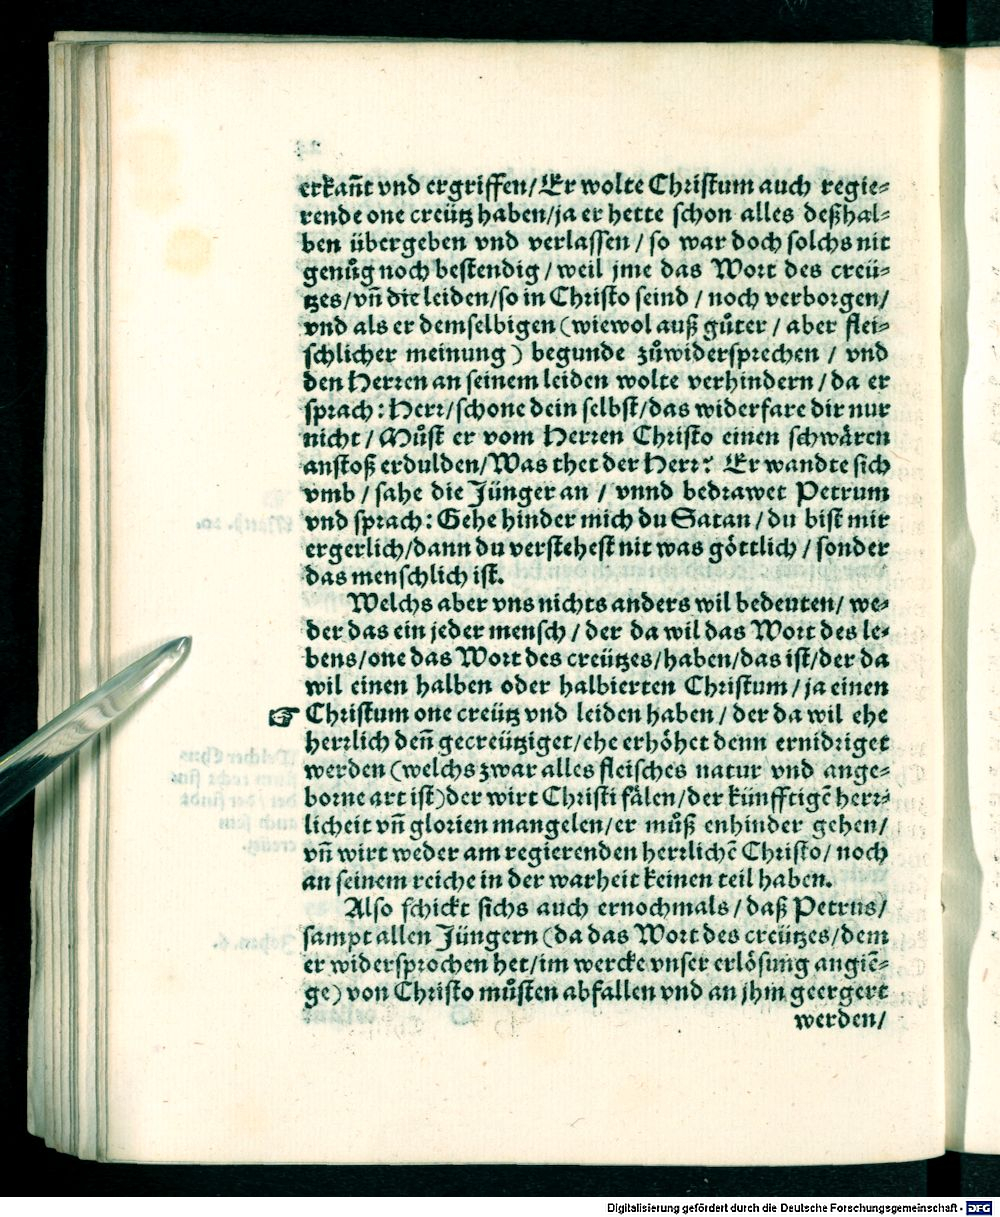 erkañt vnd ergriffen/ Er wolte Christum auch regie⸗
rende one creütz haben/ ja er hette schon alles deßhal⸗
ben übergeben vnd verlassen/ so war doch solchs nit
genůg noch bestendig/ weil jme das Wort des creü⸗
tzes/ vñ die leiden/ so in Christo seind/ noch verborgen/
vnd als er demselbigen (wiewol auß gůter/ aber flei⸗
schlicher meinung) begunde zůwidersprechen/ vnd
den Herren an seinem leiden wolte verhindern/ da er
sprach: Herr/ schone dein selbst/ das widerfare dir nur
nicht/ Můst er vom Herren Christo einen schwären
anstoß erdulden/ Was thet der Herr? Er wandte sich
vmb/ sahe die Jünger an/ vnnd bedrawet Petrum
vnd sprach: Gehe hinder mich du Satan/ du bist mir
ergerlich/ dann du verstehest nit was göttlich/ sonder
das menschlich ist.
Welchs aber vns nichts anders wil bedeuten/ we⸗
der das ein jeder mensch/ der da wil das Wort des le⸗
bens/ one das Wort des creützes/ haben/ das ist/ der da
wil einen halben oder halbierten Christum/ ja einen
☞ Christum one creütz vnd leiden haben/ der da wil ehe
herrlich deñ gecreütziget/ ehe erhöhet denn ernidriget
werden (welchs zwar alles fleisches natur vnd ange⸗
borne art ist) der wirt Christi fälen/ der künfftigẽ herr⸗
licheit vñ glorien mangelen/ er můß enhinder gehen/
vñ wirt weder am regierenden herrlichẽ Christo/ noch
an seinem reiche in der warheit keinen teil haben.
Also schickt sichs auch ernochmals/ daß Petrus/
sampt allen Jüngern (da das Wort des creützes/ dem
er widersprochen het/ im wercke vnser erlösung angiẽ⸗
ge) von Christo můsten abfallen vnd an jhm geergert
werden/
Digitalisierung gefördert durch die Deutsche Forschungsgemeinschaft - DFG